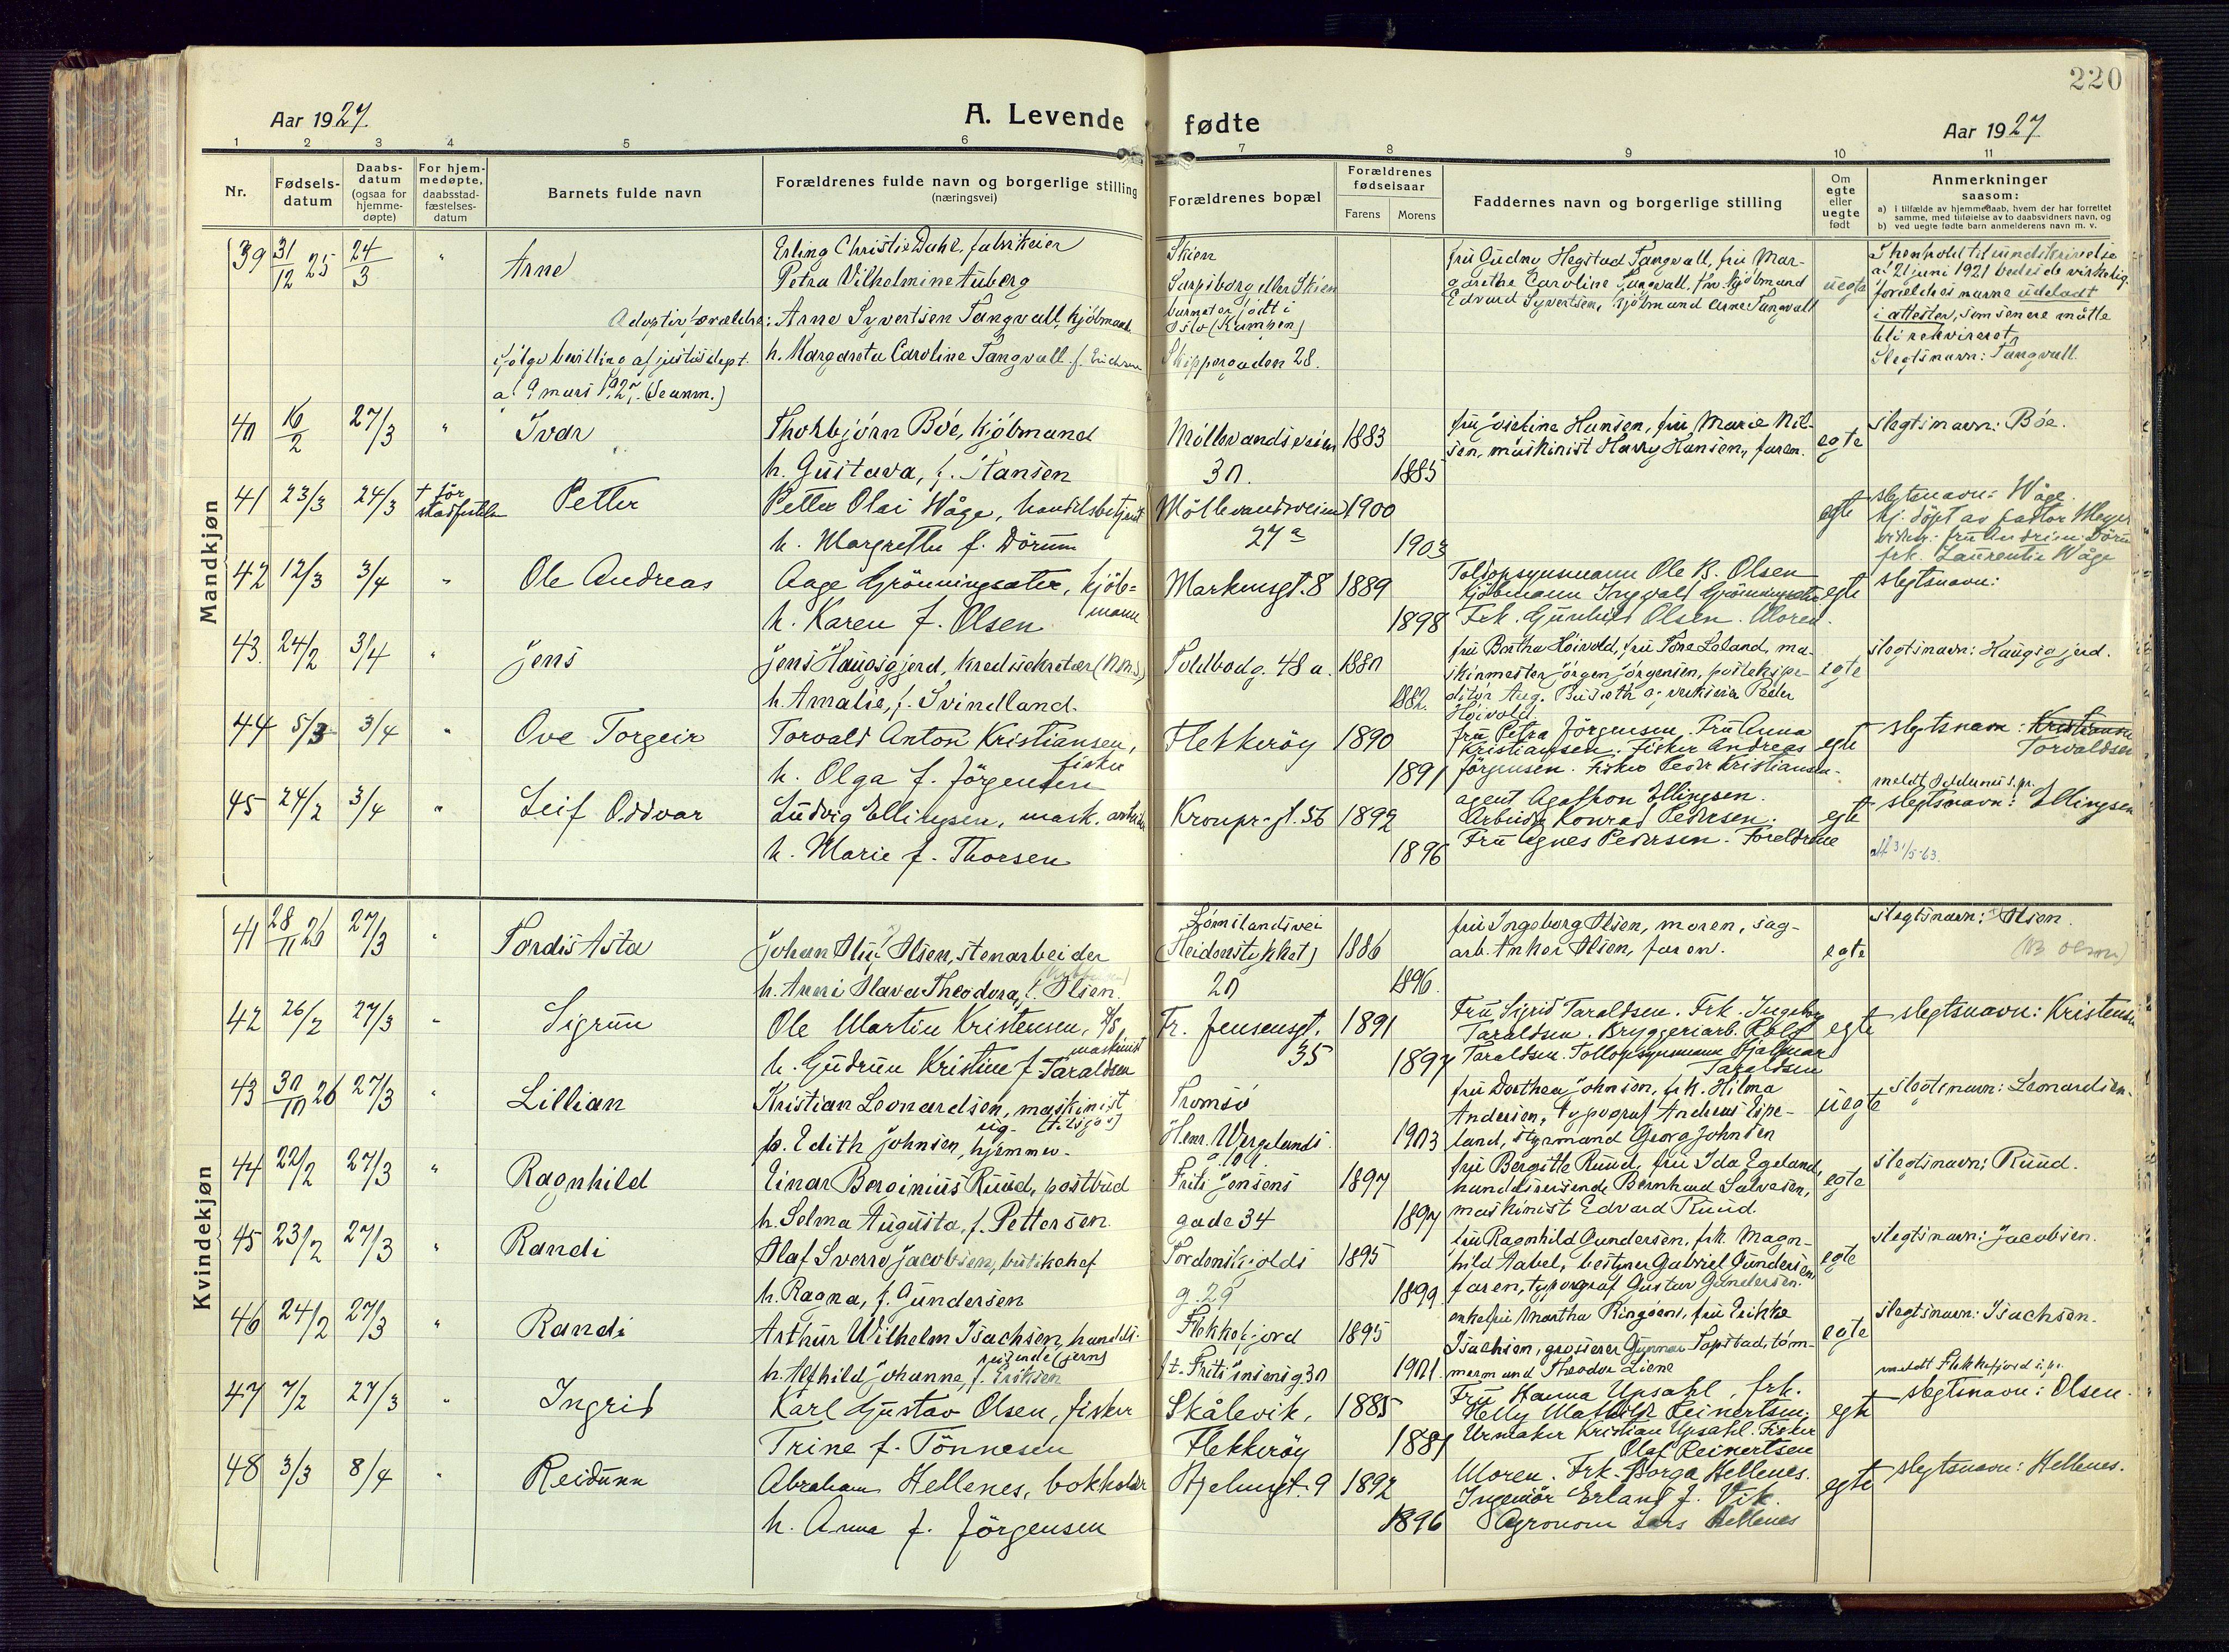 220
Aar 1927 A. Levende fødte Aar 1927
1 2 3 4 5 6 7 8 9 10 11
Nr.
Fødsels-
datum
Daabs-
datum
(ogsaa for
hjemme-
døpte)
For hjem-
medøpte,
daabsstad-
fæstelses-
datum
Barnets fulde navn
Forældrenes fulde navn og borgerlige stilling
(næringsvei)
Forældrenes bopæl
Forældrenes
fødselsaar
Farens Morens
Faddernes navn og borgerlige stilling
Om
egte
eller
uegte
født
Anmerkninger
saasom:
a) I tilfælde av hjemmedaab, hvem der har forrettet
samme, med tilføielse av to daabsvidners navn, og
b) ved uegte født barn anmelderens navn m. v.
Mandkjøn
39 31/12 25 24/3 " Arne
Erling Christie Dahl, fabrikeier
Petra Vilhelmine Auberg
Adoptivforældre: Arne Syvertsen Tangvall, kjøbmand
ifølge bevilling af justisdept.
a. 9 mars 1927. (Se anm.)
h. Margareta Caroline Tangvall f. Erichsen
Skien
Sarpsborg eller Skien
barnet er født i
Oslo (Kampen)
Skippergaden 28.
fru Gudny Hegstad Tangvall, fru Mar-
garethe Caroline Tangvall, fhv. kjøbmand
Edvard Syvertsen, kjøbmand Arne Tangvall
uegte
I henhold til rundskrivelse
af 21 juni 1921 bedes de virkelig.
forældres navne udeladt
i attester, som senere måtte
bli rekvireret.
Slegtsnavn: Tangvall.
40 16/2 27/3 " Ivar
Thorbjørn Bøe, kjøbmand
h. Gustava, f. Hansen
Møllevandsveien 1883
30. 1885
fru Josefine Hansen, fru Marie Nil-
sen, maskinist Harry Hansen, faren.
egte
slegtsnavn: Bøe.
41 23/3 24/3 † før
stadfestelsen
Petter
Petter Olai Wåge, handelsbetjent
h. Margrethe f. Dörum
Møllevandsveien 1900
27a 1903
egte
slegtsnavn: Wåge.
hj. døpt av pastor Meyer
frk. Laurentie Wåge
42 12/3 3/4 " Ole Andreas
Aage Grönningsæter, kjöb-
mann
h. Karen f. Olsen
Markensgt. 8 1889
1898
Toldopsynsmann Ole B. Olsen
Kjöbmann Ingvald Grönningsæter
Frk. Gunhild Olsen. Moren.
egte
slegtsnavn:
43. 24/2 3/4 " Jens
Jens Haugsgjerd, kredssekretær (NMS)
h. Amalie, f. Svindland.
Toldbodg. 48 a. 1880
1882.
fru Bertha Høivold, fru Tone Leland, ma-
skinmester Jørgen Jørgensen, postekspe-
ditør Aug. Buseth og verkseier Peder
Høivold.
egte
slegtsnavn: Haugsgjerd.
44 5/3 3/4 " Ove Torgeir
Torvald Anton Kristiansen,
fisker
h. Olga f. Jörgensen
Flekkeröy 1890
1891
Fru Petra Jörgensen. Fru Anna
Kristiansen. Fisker Andreas
Jörgensen. Fisker Peder Kristiansen.
egte
slegtsnavn: Kristiansen
Torvaldsen
45 24/2 3/4 " Leif Oddvar
Ludvig Ellingsen, mask. arbeider
h. Marie f. Thorsen
Kronpr. gt. 56 1892
1896
agent Agathon Ellingsen.
Arbeider Konrad Pedersen.
Fru Agnes Pedersen. Foreldrene
egte
slegtsnavn: Ellingsen
att 31/5-63.
Kvindekjøn
41 28/11 26 27/3 " Tordis Asta
Johan Olaf Olsen, stenarbeider
h. Anni Olava Theodora, f. Olsen.
Lømslandsvei
(Heidenstykket) 1886
20 1896.
fru Ingeborg Olsen, moren, sag-
arb. Anker Olsen, faren.
egte
slegtsnavn: Olsen.
42 26/2 27/3 " Sigrun
Ole Martin Kristensen, d/s
maskinist
h. Gudrun Kristine f. Taraldsen
Fr. Jensensgt. 1891
35 1897
Fru Sigrid Taraldsen. Frk. Ingeborg
Taraldsen. Bryggeriarb. Rolf
Taraldsen. Tollopsynsmann Hjalmar
Taraldsen
egte
slegtsnavn: Kristensen
43 30/10 26 27/3 " Lillian
Kristian Leonardsen, maskinist
(tilsjøs)
p. Edith Johnsen, hjemmev.
Tromsø
Henr. Wergelands 1903
g. 101
fru Dorthea Johnsen, frk. Hilma
Andersen, typograf Andreas Espe-
land, styrmand Georg Johnsen
uegte
slegtsnavn: Leonardsen.
44 22/2 27/3 " Ragnhild
Einar Berginius Ruud, postbud
h. Selma Augusta, f. Pettersen.
Frits Jensens 1897
gade 34 1897
fru Bergitte Ruud, fru Ida Egeland,
handelsreisende Bernhard Salvesen,
maskinist Edvard Ruud.
egte
slegtsnavn: Ruud.
45 23/2 27/3 " Randi
Olaf Sverre Jacobsen, butikchef
h. Ragna, f. Gundersen
Tordenskjolds 1895
g. 29 1899
fru Ragnhild Gundersen, frk. Magn-
hild Aabel, bestyrer Gabriel Gundersen,
faren, typograf Gustav Gundersen.
egte
slegtsnavn: Jacobsen.
46 24/2 27/3 " Randi
Arthur Wilhelm Isachsen, handels-
reisende (jern)
h. Alfhild Johanne, f. Eriksen
Flekkefjord 1895
t. Frits Jensensg 30 1901.
enkefru Martha Ringsen, fru Rikke
Isachsen, grosserer Gunnar Topstad, tøm-
mermand Theodor Liene
egte
slegtsnavn: Isachsen.
meldt Flekkefjord s.pr.
47 7/2 27/3 " Ingrid
Karl Gustav Olsen, fisker
Trine f. Tönnesen
Skålevik, 1885
Flekkeröy 1881
Fru Hanna Upsahl, frk.
Helly Mathilde Reinertsen.
Urmaker Kristian Upsahl. Fisker
Olaf Reinertsen
egte
slegtsnavn: Olsen.
48 3/3 8/4 " Reidunn
Abraham Hellenes, bokholder
h. Anna f. Jörgensen
Hjelmsgt. 9 1892
1896
Moren. Frk. Borga Hellenes.
Ingeniör Erland J. Vik.
Agronom Lars Hellenes
egte
slegtsnavn: Hellenes.